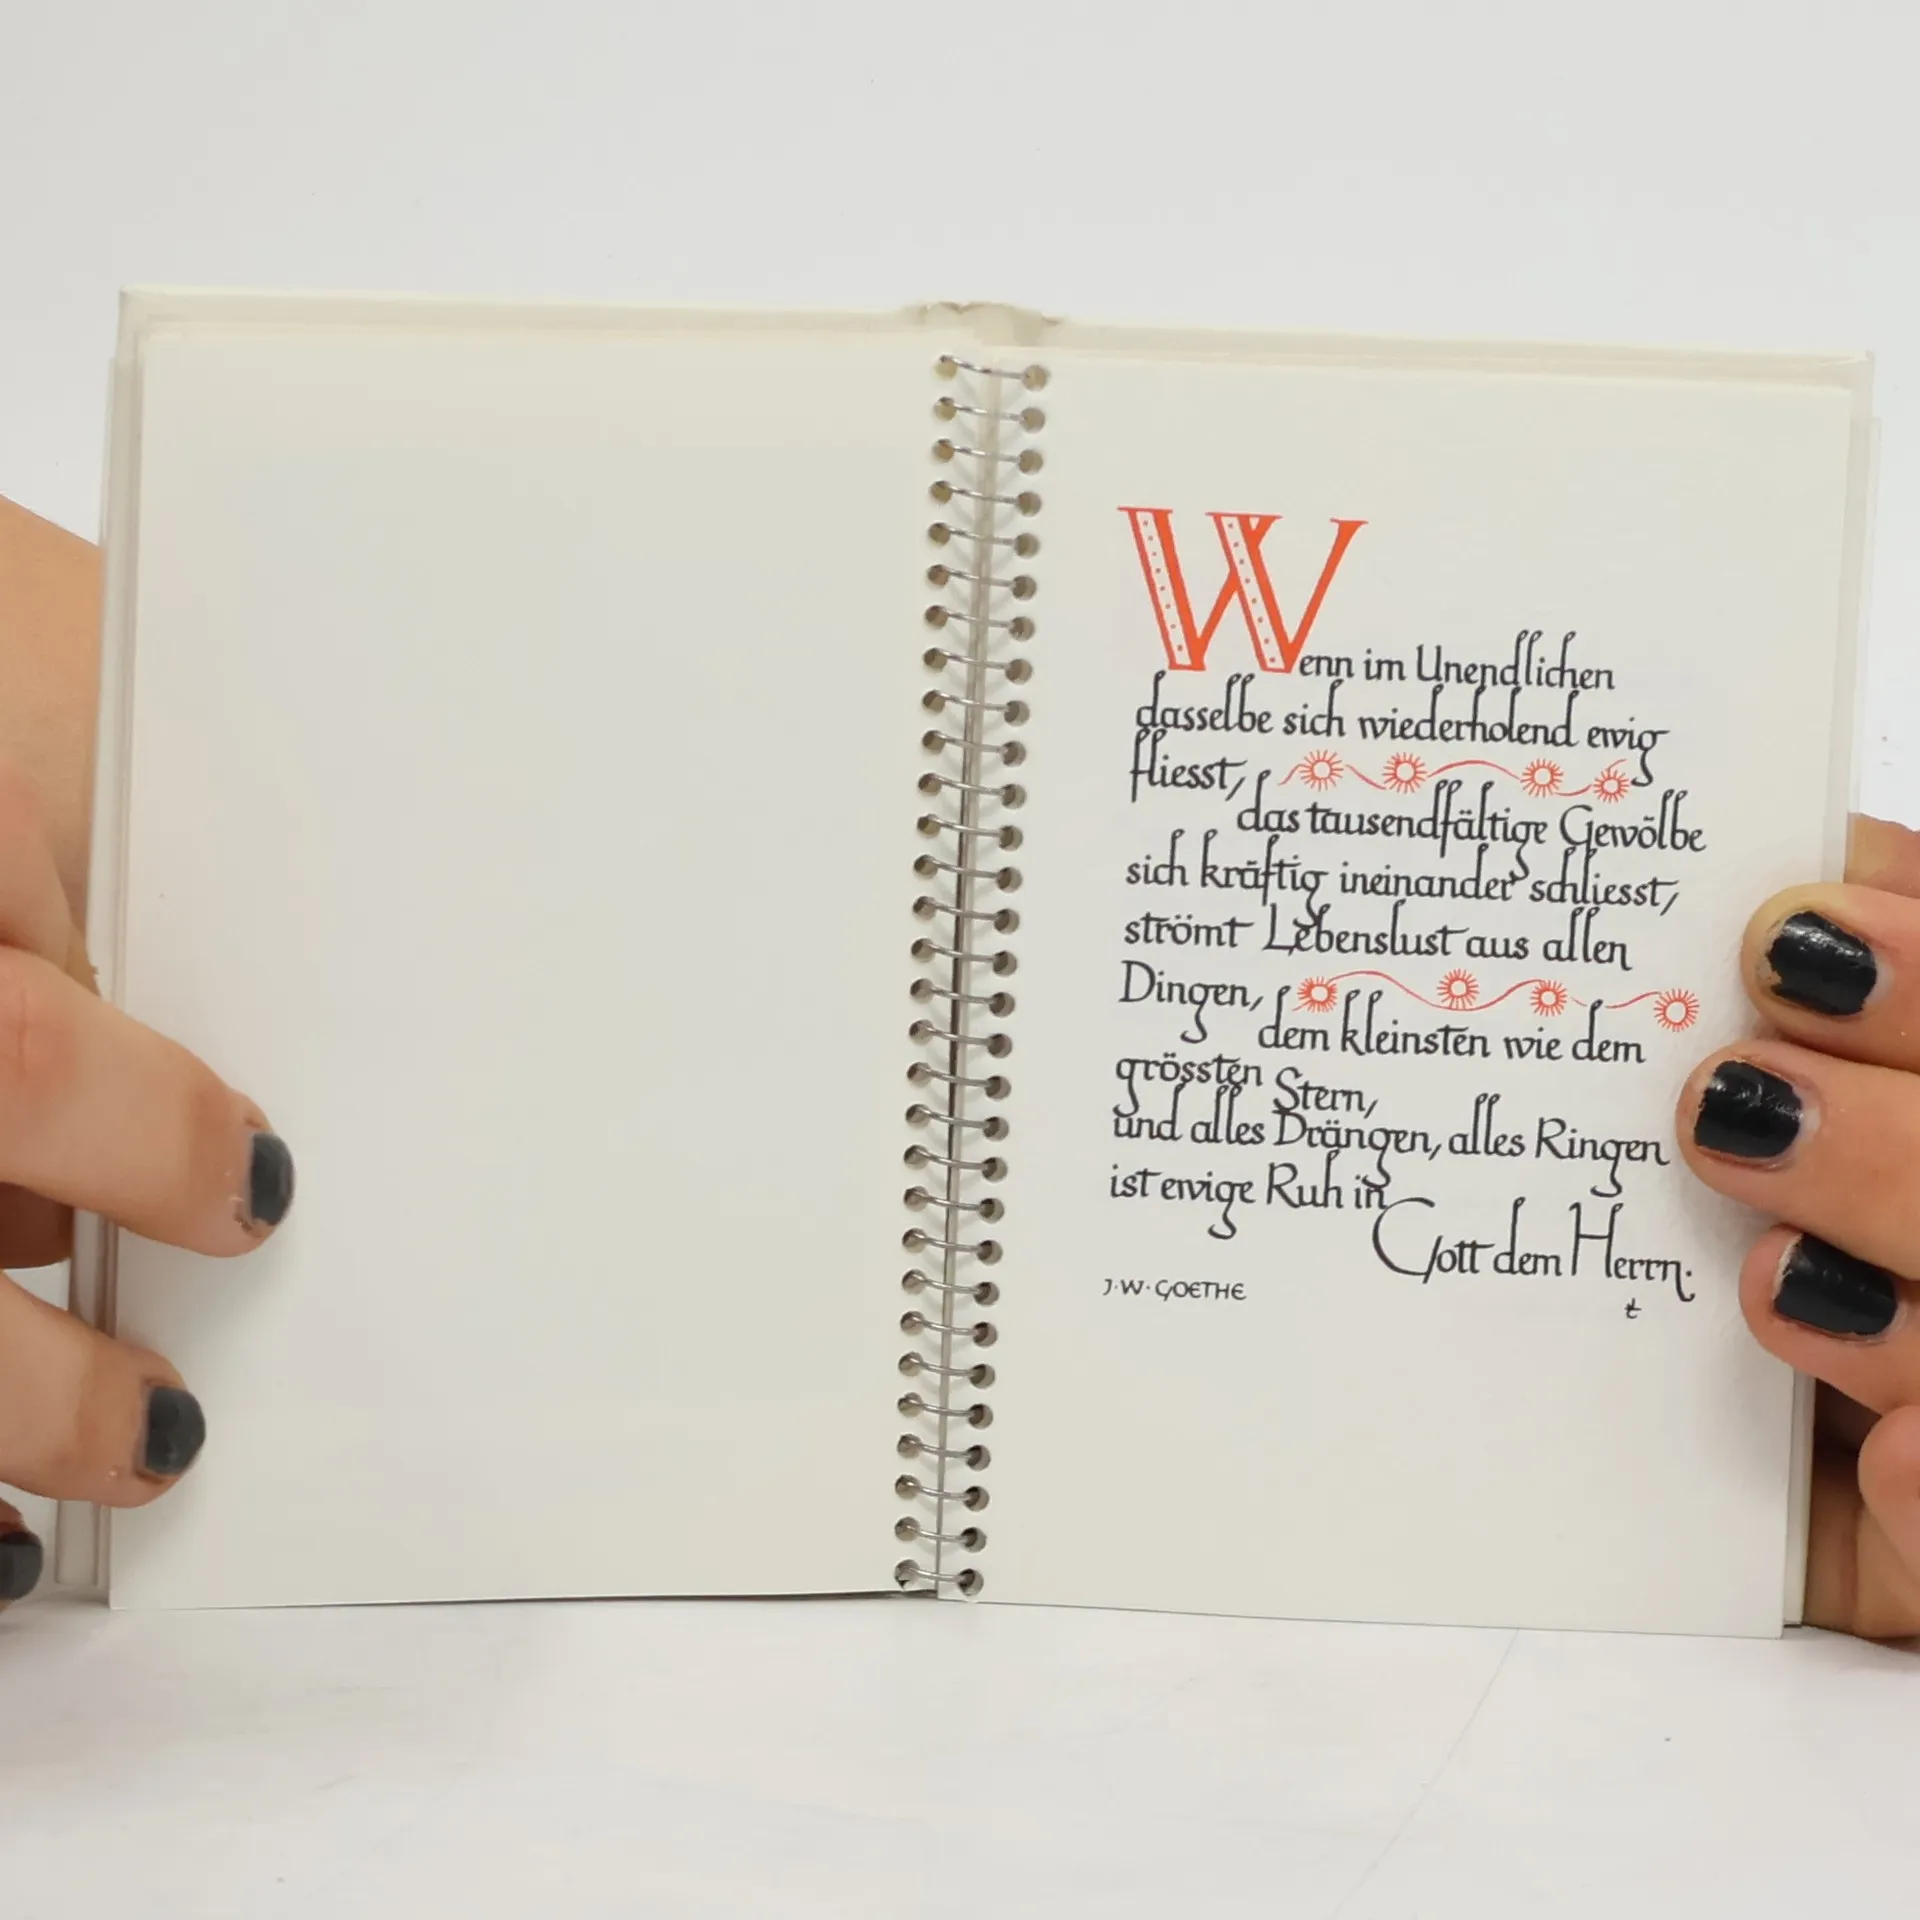 Wenn im Unendlichen
dasselbe sich wiederholend ewig
fliesst,
das tausendfältige Gewölbe
sich kräftig ineinander schliesst,
strömt Lebenslust aus allen
Dingen,
dem kleinsten wie dem
grössten Stern,
und alles Drängen, alles Ringen
ist ewige Ruh in
Gott dem Herrn.
J·W·GOETHE
t